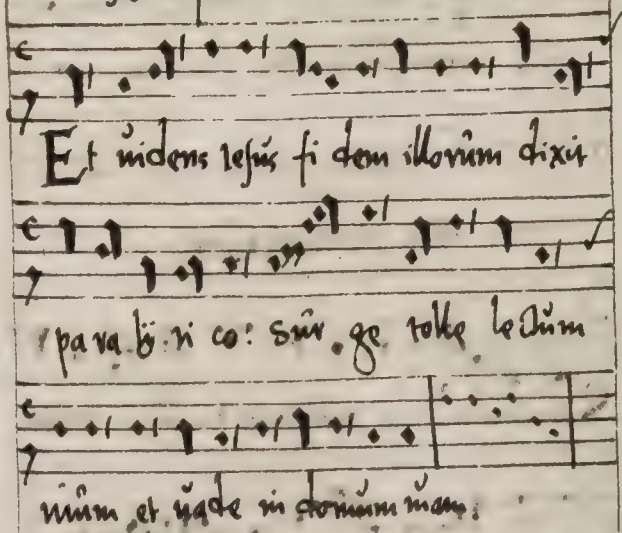 Et uidens Iesus fi dem illorum dixit
para ly ti co: Sur ge tolle lectum
tuum et uade in domum tuam: